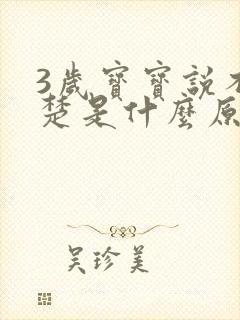 3歲寶寶說
楚是什麼原
吳珍美